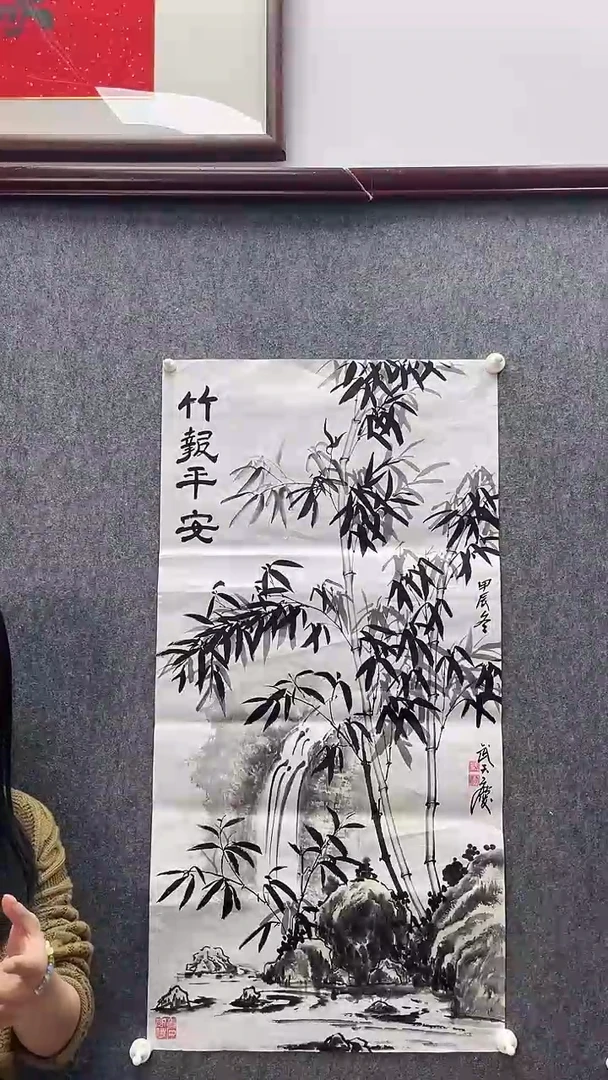 竹報平安
甲辰冬
武大慶